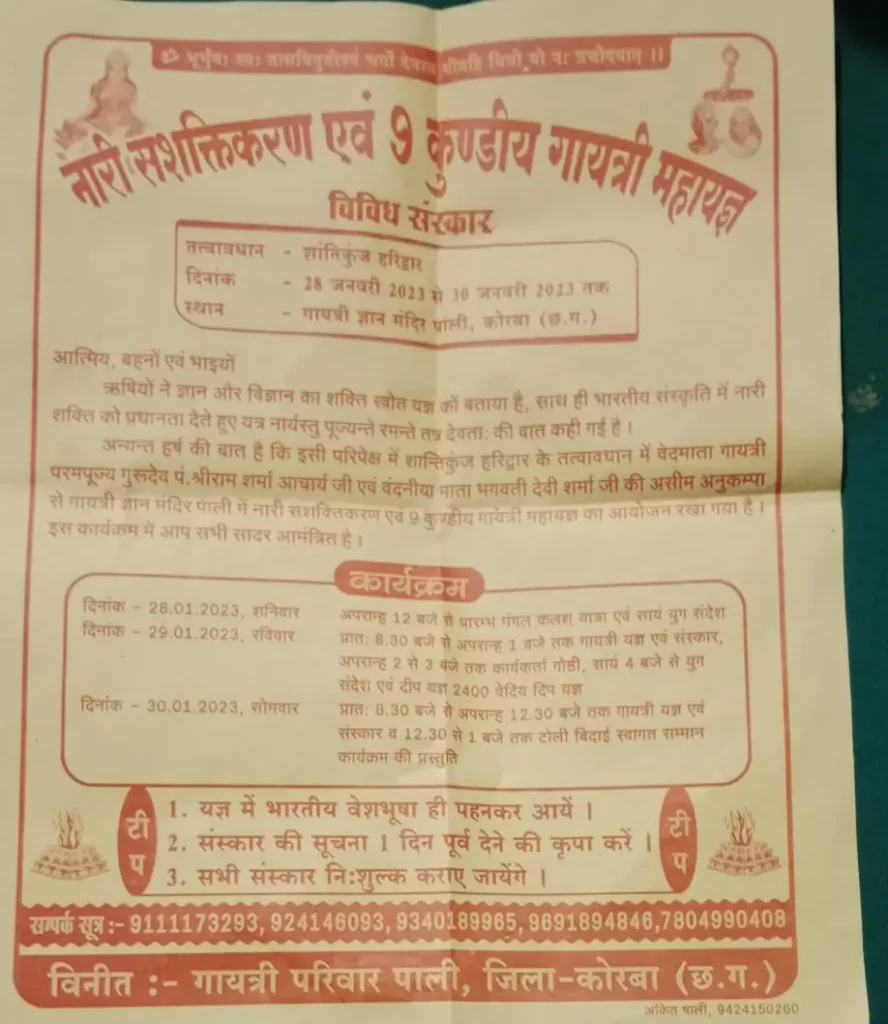 ॐ भूर्भुवः स्वः तत्सवितुर्वरेण्यं भर्गो देवस्य धीमहि धियो यो नः प्रचोदयात् ।।
नारी सशक्तिकरण एवं 9 कुण्डीय गायत्री महायज्ञ
विविध संस्कार
तत्वावधान - शांतिकुंज हरिद्वार
दिनांक - 28 जनवरी 2023 से 30 जनवरी 2023 तक
स्थान - गायत्री ज्ञान मंदिर पाली, कोरबा (छ.ग.)
आत्मिय, बहनों एवं भाइयों
ऋषियों ने ज्ञान और विज्ञान का शक्ति स्त्रोत यज्ञ कों बताया है, साथ ही भारतीय संस्कृति में नारी
शक्ति को प्रधानता देते हुए यत्र नार्यस्तु पूज्यन्ते रमन्ते तत्र देवताः की बात कही गई है ।
अन्यन्त हर्ष की बात है कि इसी परिपेक्ष में शान्तिकुंज हरिद्वार के तत्वावधान में वेदमाता गायत्री
परमपूज्य गुरूदेव पं.श्रीराम शर्मा आचार्य जी एवं वंदनीया माता भगवती देवी शर्मा जी की असीम अनुकम्पा
से गायत्री ज्ञान मंदिर पाली में नारी सशक्तिकरण एवं 9 कुण्डीय गायत्री महायज्ञ का आयोजन रखा गया है ।
इस कार्यक्रम में आप सभी सादर आमंत्रित है ।
कार्यक्रम
दिनांक - 28.01.2023, शनिवार अपरान्ह 12 बजे से प्रारम्भ मंगल कलश यात्रा एवं सायं युग संदेश
दिनांक - 29.01.2023, रविवार प्रातः 8.30 बजे से अपरान्ह 1 बजे तक गायत्री यज्ञ एवं संस्कार,
अपरान्ह 2 से 3 बजे तक कार्यकर्ता गोष्ठी, सायं 4 बजे से युग
संदेश एवं दीप यज्ञ 2400 वेदिय दिप यज्ञ
दिनांक - 30.01.2023, सोमवार प्रातः 8.30 बजे से अपरान्ह 12.30 बजे तक गायत्री यज्ञ एवं
संस्कार व 12.30 से 1 बजे तक टोली बिदाई स्वागत सम्मान
कार्यक्रम की प्रस्तुति
टीप
1. यज्ञ में भारतीय वेशभूषा ही पहनकर आयें ।
2. संस्कार की सूचना 1 दिन पूर्व देने की कृपा करें ।
3. सभी संस्कार निःशुल्क कराए जायेंगे ।
टीप
सम्पर्क सूत्र :- 9111173293, 924146093, 9340189965, 9691894846,7804990408
विनीत :- गायत्री परिवार पाली, जिला-कोरबा (छ.ग.)
अंकित पाली, 9424150260